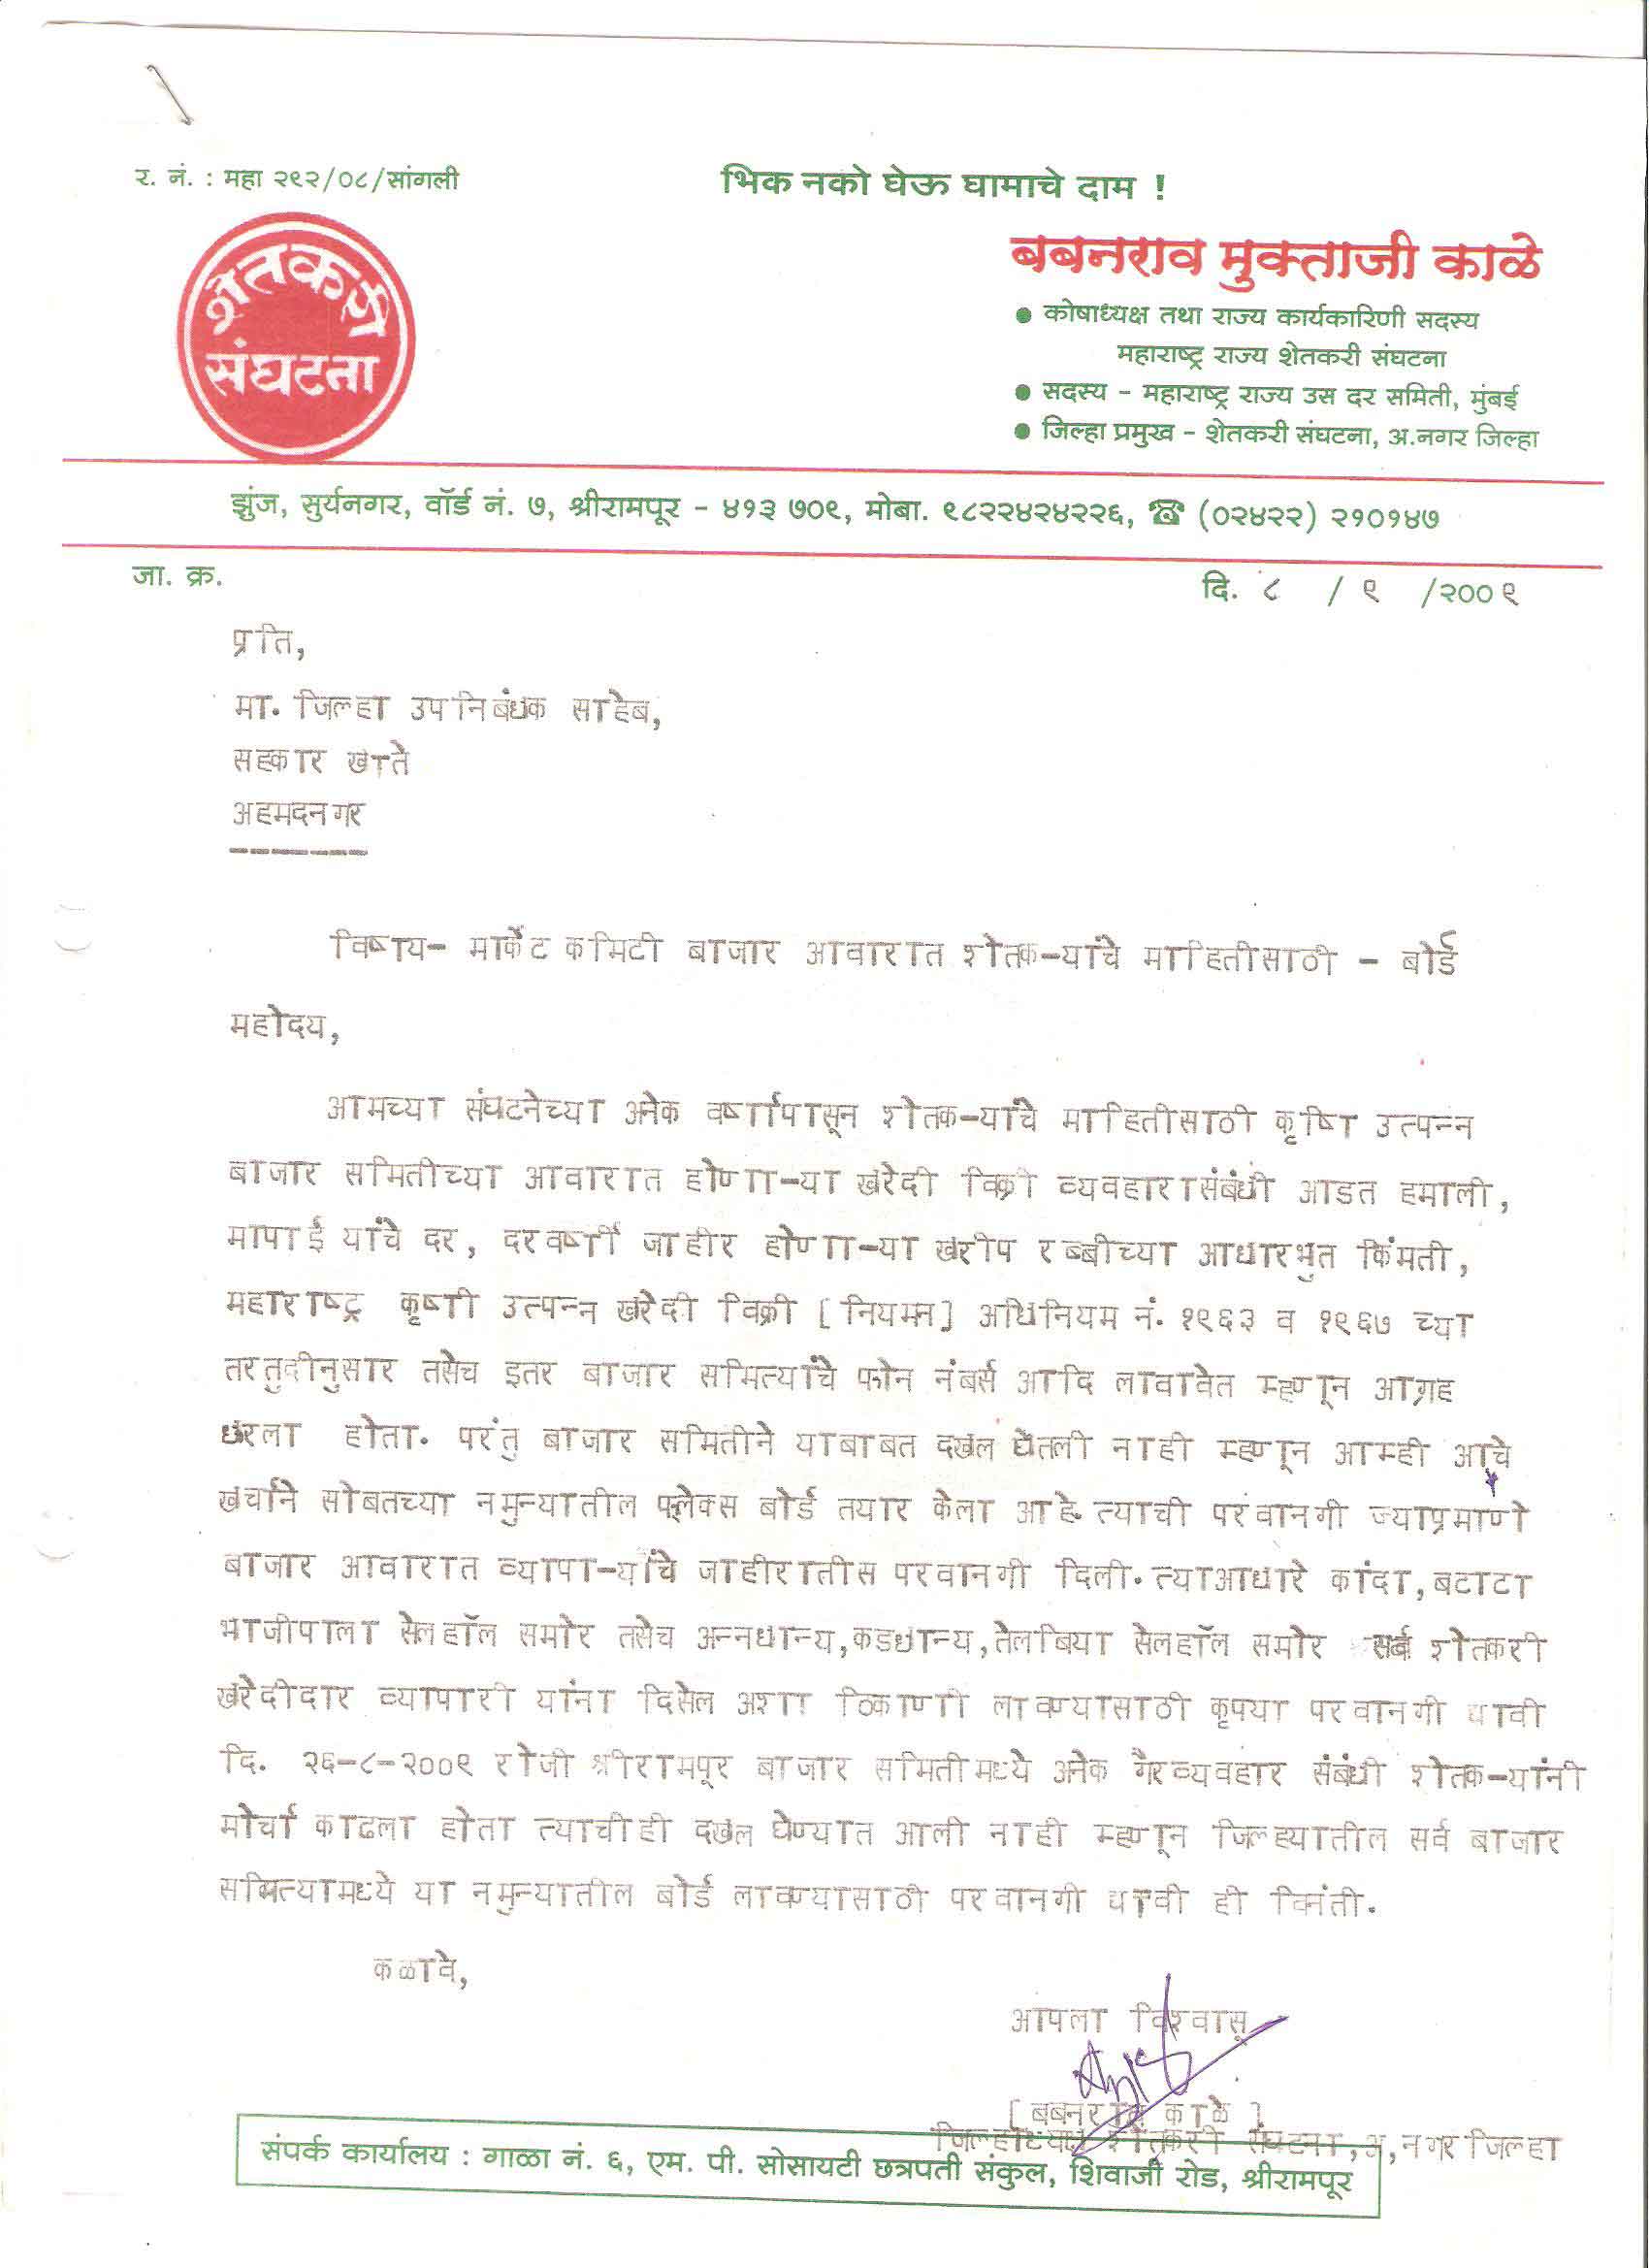 र. नं. : महा २९२/०८/सांगली
भिक नको घेऊ घामाचे दाम !
शेतकरी
संघटना
बबनराव मुक्ताजी काळे
● कोषाध्यक्ष तथा राज्य कार्यकारिणी सदस्य
महाराष्ट्र राज्य शेतकरी संघटना
● सदस्य - महाराष्ट्र राज्य उस दर समिती, मुंबई
● जिल्हा प्रमुख - शेतकरी संघटना, अ.नगर जिल्हा
झुंज, सुर्यनगर, वॉर्ड नं. ७, श्रीरामपूर - ४१३ ७०९, मोबा. ९८२२४२४२२६, ☎ (०२४२२) २१०१४७
जा. क्र.
दि. ८ / ९ /२००९
प्रति,
मा. जिल्हा उपनिबंधक साहेब,
सहकार खाते
अहमदनगर
विषय- मार्केट कमिटी बाजार आवारात शेतक-यांचे माहितीसाठी - बोर्ड
महोदय,
आमच्या संघटनेच्या अनेक वर्षापासून शेतक-यांचे माहितीसाठी कृषि उत्पन्न
बाजार समितीच्या आवारात होणा-या खरेदी विक्री व्यवहारासंबंधी आडत हमाली,
मापाई यांचे दर, दरवर्षी जाहीर होणा-या खरीप रब्बीच्या आधारभुत किंमती,
महाराष्ट्र कृषी उत्पन्न खरेदी विक्री [नियमन] अधिनियम नं. १९६३ व १९६७ च्या
तरतुदीनुसार तसेच इतर बाजार समित्यांचे फोन नंबर्स आदि लावावेत म्हणून आग्रह
धरला होता. परंतु बाजार समितीने याबाबत दखल घेतली नाही म्हणून आम्ही आमचे
खर्चाने सोबतच्या नमुन्यातील फ्लेक्स बोर्ड तयार केला आहे. त्याची परवानगी ज्याप्रमाणे
बाजार आवारात व्यापा-यांचे जाहीरातीस परवानगी दिली. त्याआधारे कांदा,बटाटा
भाजीपाला सेलहॉल समोर तसेच अन्नधान्य,कडधान्य,तेलबिया सेलहॉल समोर सर्व शेतकरी
खरेदीदार व्यापारी यांना दिसेल अशा ठिकाणी लावण्यासाठी कृपया परवानगी द्यावी
दि. २६-८-२००९ रोजी श्रीरामपूर बाजार समितीमध्ये अनेक गैरव्यवहार संबंधी शेतक-यांनी
मोर्चा काढला होता त्याचीही दखल घेण्यात आली नाही म्हणून जिल्ह्यातील सर्व बाजार
समित्यामध्ये या नमुन्यातील बोर्ड लावण्यासाठी परवानगी द्यावी ही विनंती.
कळावे,
आपला विश्वासू
[ बबनराव काळे ]
जिल्हाध्यक्ष शेतकरी संघटना,अ,नगर जिल्हा
संपर्क कार्यालय : गाळा नं. ६, एम. पी. सोसायटी छत्रपती संकुल, शिवाजी रोड, श्रीरामपूर